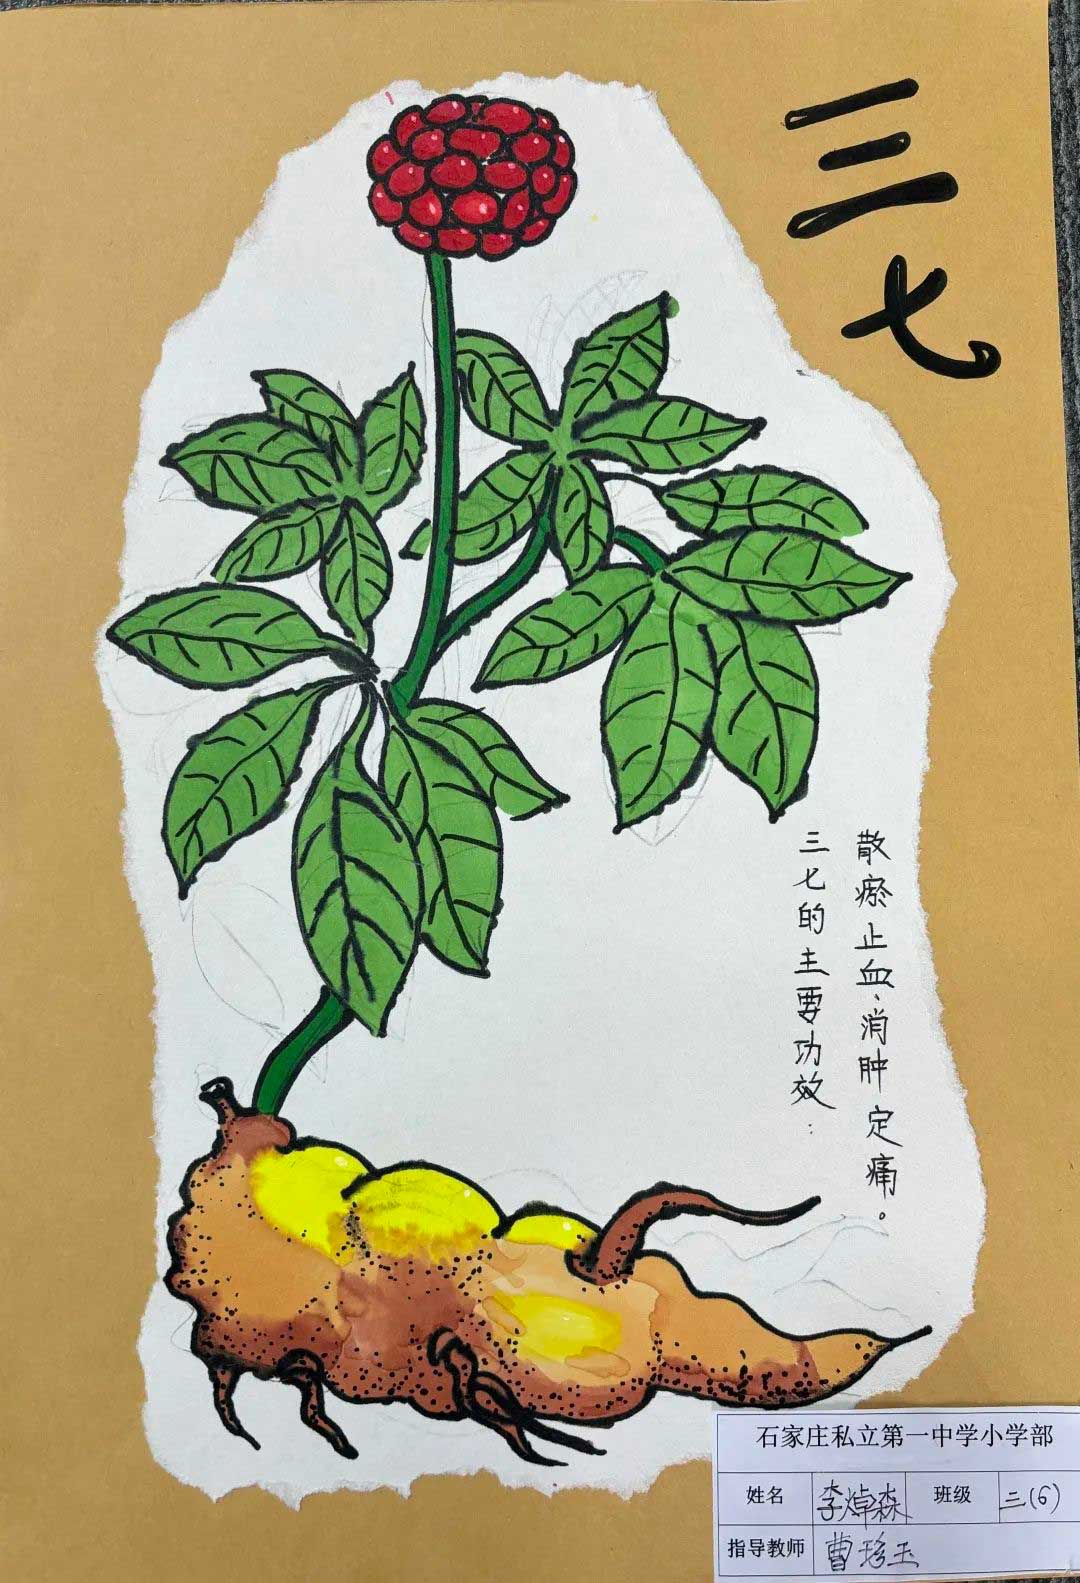 三七
三七的主要功效：
散瘀止血、消肿定痛。
石家庄私立第一中学小学部
姓名 李焯森 班级 三(6)
指导教师 曹珍玉